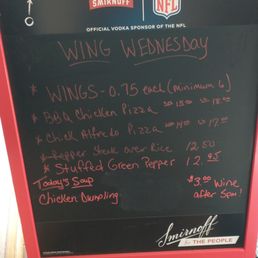 SMIRNOFF
NFL
OFFICIAL VODKA SPONSOR OF THE NFL
WING WEDNESDAY
* WINGS - 0.75 each (minimum 6)
* BBQ Chicken Pizza
* Chick Alfredo Pizza
* Pepper Steak over Rice 12.50
* Stuffed Green Pepper 12.95
Today's Soup
Chicken Dumpling
$3.00 Wine
after 5pm!
Smirnoff
THE PEOPLE